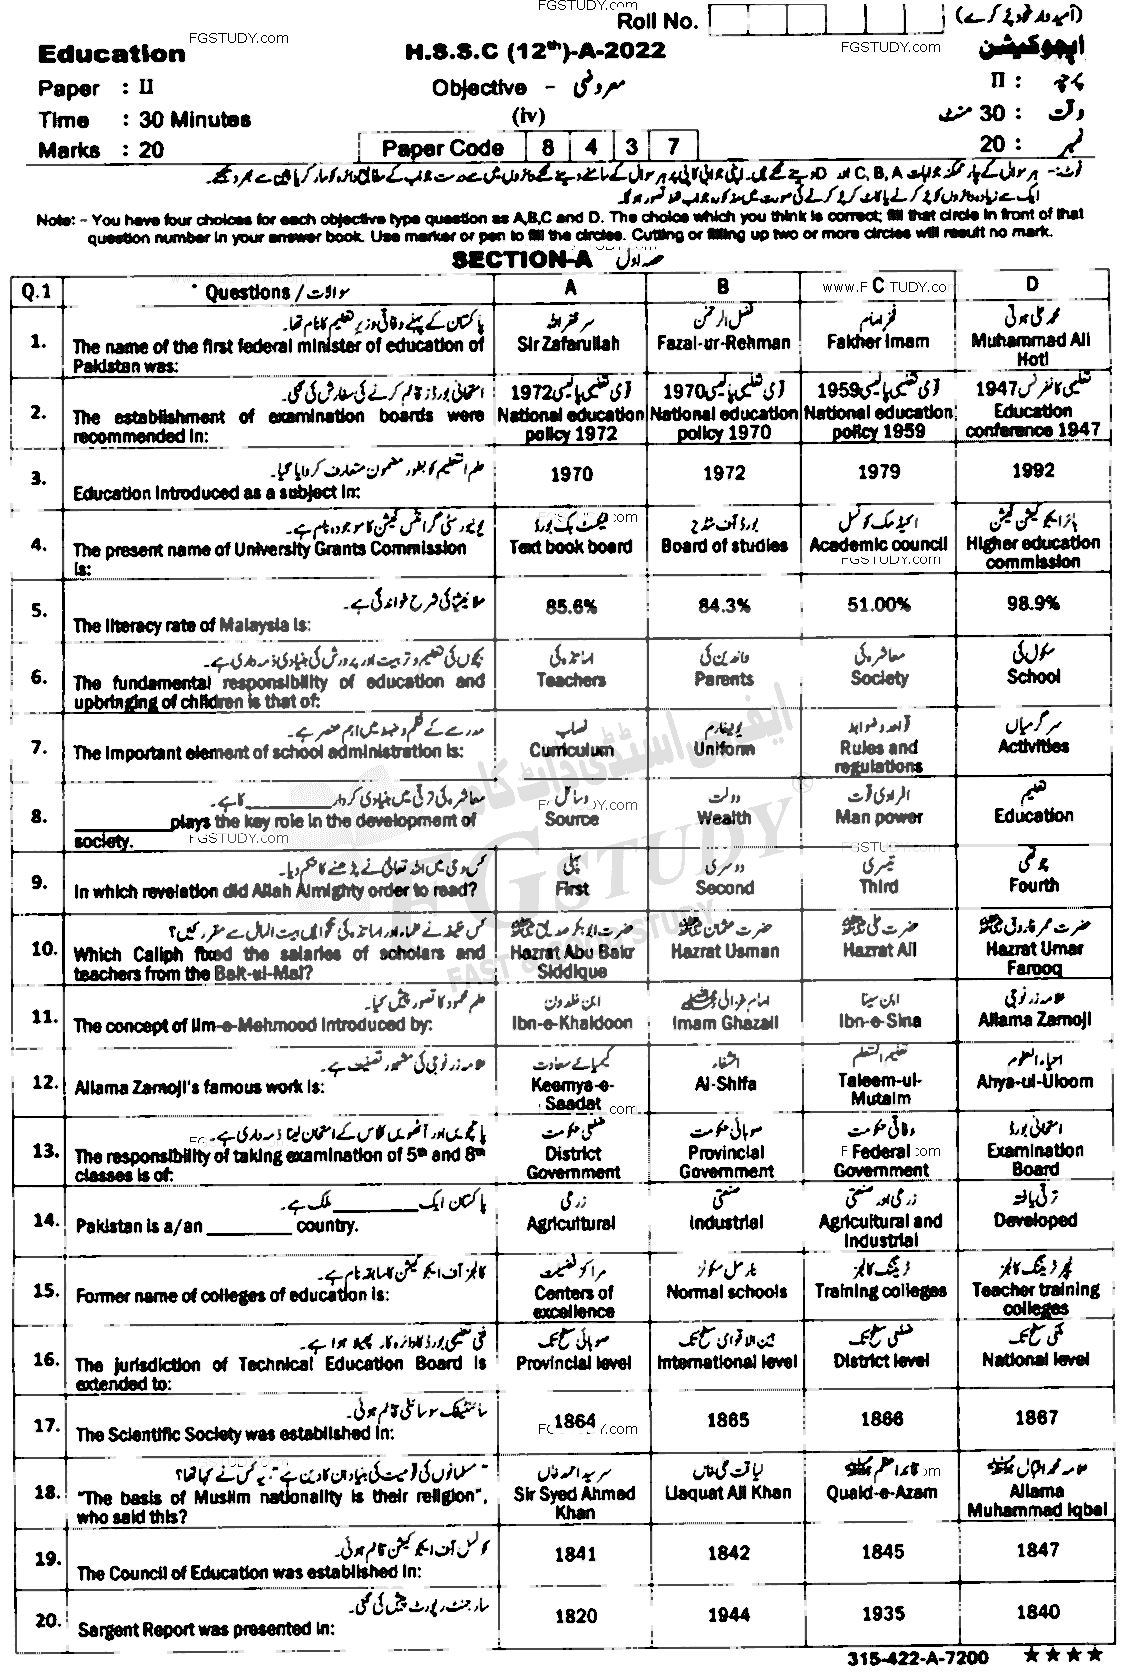 FGSTUDY.com
Roll No. (امیدوار خود پُر کرے)
FGSTUDY.com FGSTUDY.com
Education H.S.S.C (12th)-A-2022 ایجوکیشن
Paper : II Objective - معروضی پرچہ : II
Time : 30 Minutes (iv) وقت : 30 منٹ
Marks : 20 Paper Code 8 4 3 7 نمبر : 20
Note: - You have four choices for each objective type question as A,B,C and D. The choice which you think is correct; fill that circle in front of that
question number in your answer book. Use marker or pen to fill the circles. Cutting or filling up two or more circles will result no mark.
SECTION-A حصہ اول
Q.1 Questions / سوالات A B C D
www.F TUDY.co
پاکستان کے پہلے وفاقی وزیر تعلیم کا نام تھا۔ سر ظفر اللہ فضل الرحمٰن فخر امام محمد علی ہوتی
1. The name of the first federal minister of education of Pakistan was: Sir Zafarullah Fazal-ur-Rehman Fakher Imam Muhammad Ali Hoti
امتحانی بورڈز قائم کرنے کی سفارش کی گئی۔ قومی تعلیمی پالیسی 1972 قومی تعلیمی پالیسی 1970 قومی تعلیمی پالیسی 1959 تعلیمی کانفرنس 1947
2. The establishment of examination boards were recommended in: National education policy 1972 National education policy 1970 National education policy 1959 Education conference 1947
علم التعلیم کا بطور مضمون متعارف کروایا گیا۔
3. Education introduced as a subject in: 1970 1972 1979 1992
یونیورسٹی گرانٹس کمیشن کا موجودہ نام ہے۔ ٹیکسٹ بک بورڈ بورڈ آف سٹڈیز اکیڈمک کونسل ہائر ایجوکیشن کمیشن
4. The present name of University Grants Commission is: Text book board Board of studies Academic council Higher education commission
FGSTUDY.com
ملائیشیا کی شرح خواندگی ہے۔
5. The literacy rate of Malaysia is: 85.6% 84.3% 51.00% 98.9%
بچوں کی تعلیم و تربیت اور پرورش کی بنیادی ذمہ داری ہے۔ اساتذہ کی والدین کی معاشرہ کی سکول کی
6. The fundamental responsibility of education and upbringing of children is that of: Teachers Parents Society School
مدرسے کے نظم و ضبط میں اہم عنصر ہے۔ نصاب یونیفارم قواعد و ضوابط سرگرمیاں
7. The important element of school administration is: Curriculum Uniform Rules and regulations Activities
معاشرہ کی ترقی میں بنیادی کردار ________ کا ہے۔ وسائل دولت افرادی قوت تعلیم
8. ________ plays the key role in the development of society. Source Wealth Man power Education
FGSTUDY.com
کس وحی میں اللہ تعالیٰ نے پڑھنے کا حکم دیا۔ پہلی دوسری تیسری چوتھی
9. In which revelation did Allah Almighty order to read? First Second Third Fourth
کس خلیفہ نے علماء اور اساتذہ کی تنخواہیں بیت المال سے مقرر کیں؟ حضرت ابوبکر صدیق حضرت عثمان حضرت علی حضرت عمر فاروق
10. Which Caliph fixed the salaries of scholars and teachers from the Bait-ul-Mal? Hazrat Abu Bakr Siddique Hazrat Usman Hazrat Ali Hazrat Umar Farooq
علم محمود کا تصور پیش کیا۔ ابن خلدون امام غزالی ابن سینا علامہ زرنوجی
11. The concept of Ilm-e-Mehmood introduced by: Ibn-e-Khaldoon Imam Ghazali Ibn-e-Sina Allama Zarnoji
علامہ زرنوجی کی مشہور تصنیف ہے۔ کیمیائے سعادت الشفاء تعلیم المتعلم احیاء العلوم
12. Allama Zarnoji's famous work is: Keemya-e-Saadat Al-Shifa Taleem-ul-Mutalm Ahya-ul-Uloom
پانچویں اور آٹھویں کلاس کے امتحان لینا ذمہ داری ہے۔ ضلعی حکومت صوبائی حکومت وفاقی حکومت امتحانی بورڈ
13. The responsibility of taking examination of 5th and 8th classes is of: District Government Provincial Government Federal Government Examination Board
پاکستان ایک ________ ملک ہے۔ زرعی صنعتی زرعی اور صنعتی ترقی یافتہ
14. Pakistan is a/an ________ country. Agricultural Industrial Agricultural and Industrial Developed
کالجز آف ایجوکیشن کا سابقہ نام ہے۔ مراکز فضیلت نارمل سکولز ٹریننگ کالجز ٹیچر ٹریننگ کالجز
15. Former name of colleges of education is: Centers of excellence Normal schools Training colleges Teacher training colleges
فنی تعلیمی بورڈ کا دائرہ کار پھیلا ہوا ہے۔ صوبائی سطح تک بین الاقوامی سطح تک ضلعی سطح تک ملکی سطح تک
16. The jurisdiction of Technical Education Board is extended to: Provincial level International level District level National level
سائنٹیفک سوسائٹی قائم ہوئی۔
17. The Scientific Society was established in: 1864 1865 1866 1867
"مسلمانوں کی قومیت کی بنیاد ان کا دین ہے"، یہ کس نے کہا تھا؟ سر سید احمد خاں لیاقت علی خاں قائد اعظم علامہ محمد اقبال
18. "The basis of Muslim nationality is their religion", who said this? Sir Syed Ahmed Khan Liaquat Ali Khan Quaid-e-Azam Allama Muhammad Iqbal
کونسل آف ایجوکیشن قائم ہوئی۔
19. The Council of Education was established in: 1841 1842 1845 1847
سارجنٹ رپورٹ پیش کی گئی۔
20. Sargent Report was presented in: 1820 1944 1935 1840
315-422-A-7200 ★★★★